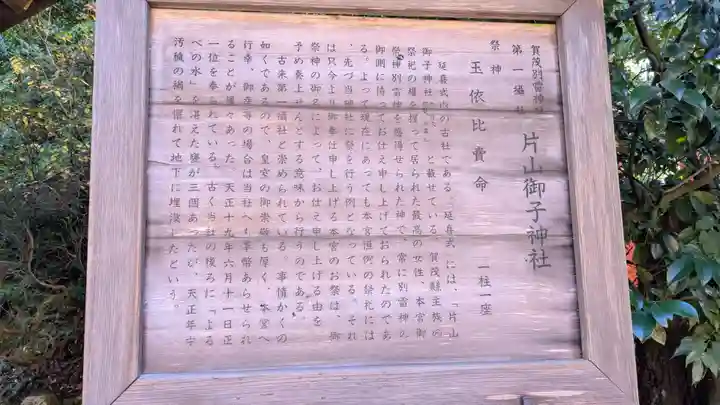 賀茂別雷神社
第一摂社　片山御子神社
祭神
玉依比賣命　一柱一座
延喜式内の古社である。延喜式には、「片山
御子神社
と載せている。賀茂縣主族の
祭祀の権を握って居られた最高の女性、本宮御
祭神別雷神を感得せられた神で、常に別雷神の
御側に侍ってお仕え申し上げておられたのであ
る。よって現在にあっても本宮恒例の祭礼には
、先づ当神社に祭を行う例となっている。それ
は只今より御奉仕申し上げる本宮のお祭は、御
祭神の御名によって、お仕え申し上げる由を
予め奏上せんとする意味から行うのである。
古来第一摂社と崇められている。事情かくの
如くであるので、皇室の御崇敬も厚く、本宮へ
行幸、御幸等の場合は当社へも奉幣あらせられ
ることが屡々あった。天正十九年六月十一日正
一位を奉られている。古く当社の後ろに「よる
べの水」を湛えた甕が三個あったが、天正年守
汚穢の触を憚れて地下に埋没したという。